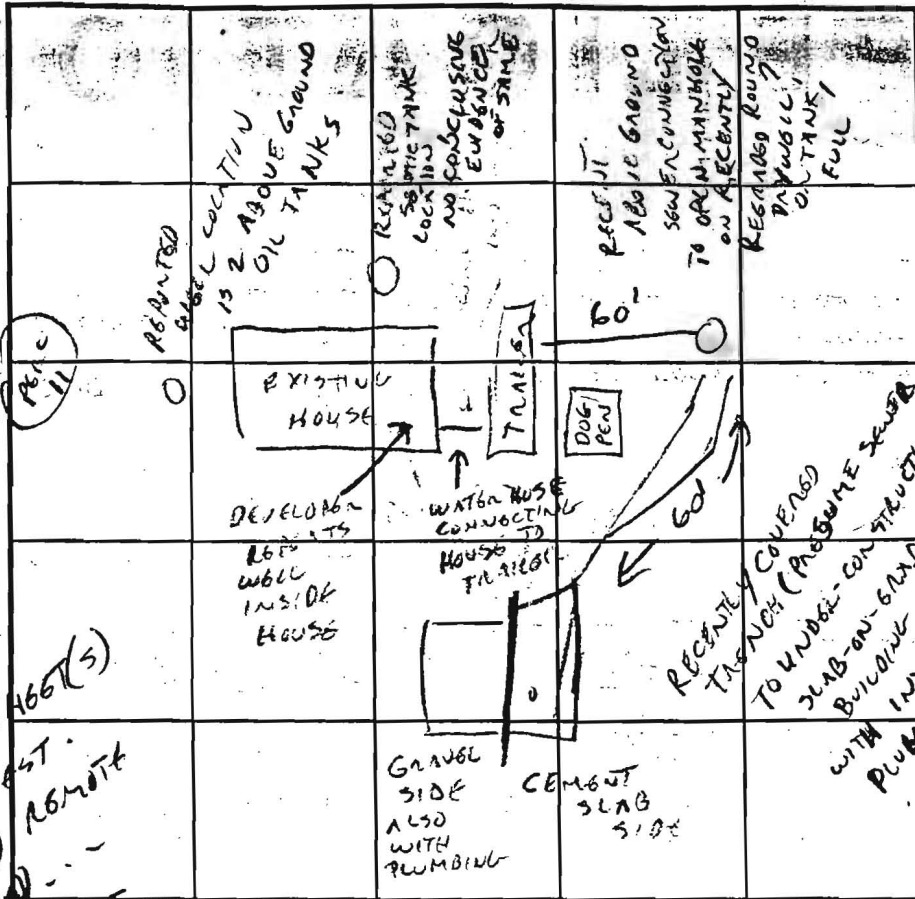 REPORTED
LOCATION
IS 2 ABOVE GROUND
OIL TANKS
SEPTIC TANK
LOCATION
NO CONCLUSIVE
EVIDENCE
OF SAME
RECENT
ABOVE GROUND
SEWER CONNECTION
TO OPEN MANHOLE
ON RECENTLY
REGRADED ROUND
DRYWELL
OR TANK
FULL
60'
PERC
11
EXISTING
HOUSE
TRAILER
DOG
PEN
DEVELOPER
REPORTS
WELL
INSIDE
HOUSE
WATER HOSE
CONNECTING
HOUSE TO
TRAILER
60'
RECENTLY COVERED
TRENCH (PRESUME SEWER
TO UNDER-CONSTRUCT
SLAB-ON-GRA
BUILDING
WITH IN
PLUM
REMOTE
GRAVEL
SIDE
ALSO
WITH
PLUMBING
CEMENT
SLAB
SIDE